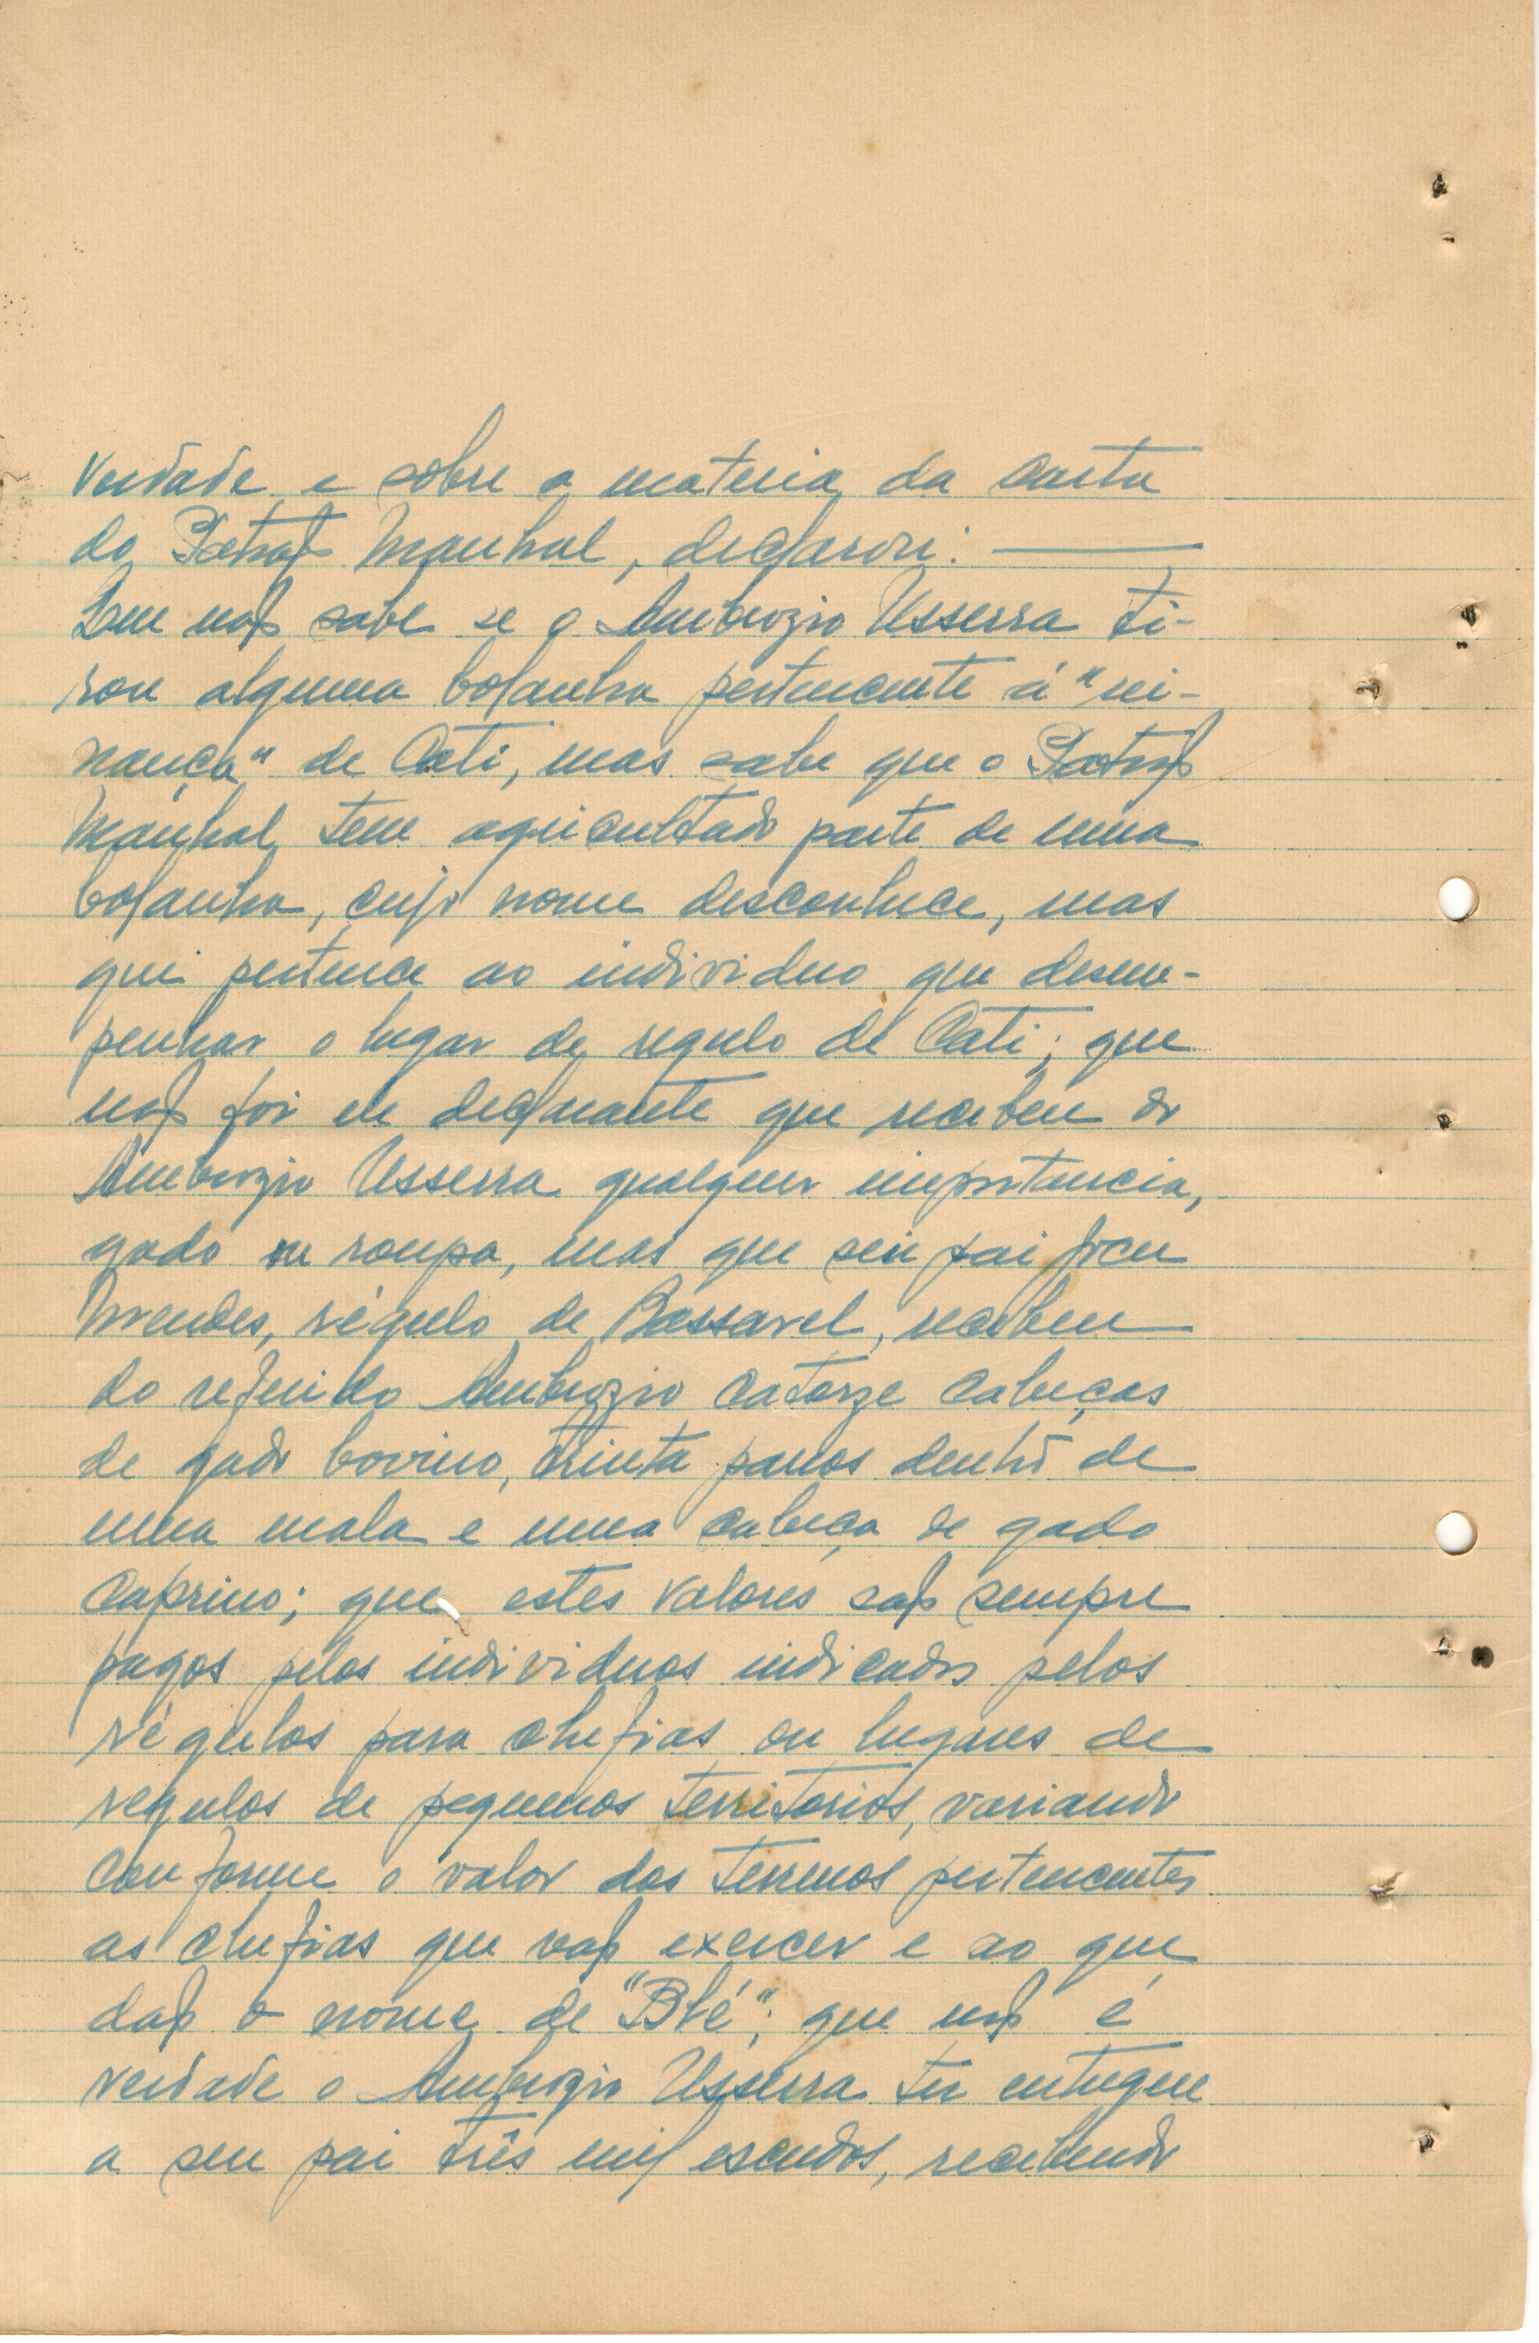 verdade e sobre a materia da carta
do Patrão Manhal, declarou:
Que não sabe se o Ambrozio Usserra ti-
rou alguma bolanha pertencente á "rei-
nança" de Cati, mas sabe que o Patrão
Manhal tem agricultado parte de uma
bolanha, cujo nome desconhece, mas
que pertence ao individuo que desem-
penhar o lugar de regulo de Cati; que
não foi ele declarante que recebeu do
Ambrozio Usserra qualquer importancia,
gado ou roupa, mas que seu pai
Mendes, régulo de Bassarel, recebeu
do referido Ambrozio catorze cabeças
de gado bovino, trinta panos dentro de
uma mala e uma cabeça de gado
caprino; que estes valores são sempre
pagos pelos individuos indicados pelos
régulos para chefias ou lugares de
regulos de pequenos territorios, variando
conforme o valor dos terrenos pertencentes
as chefias que vão exercer e ao que
dão o nome de "Blé"; que não é
verdade o Ambrozio Usserra ter entregue
a seu pai três mil escudos, recebendo